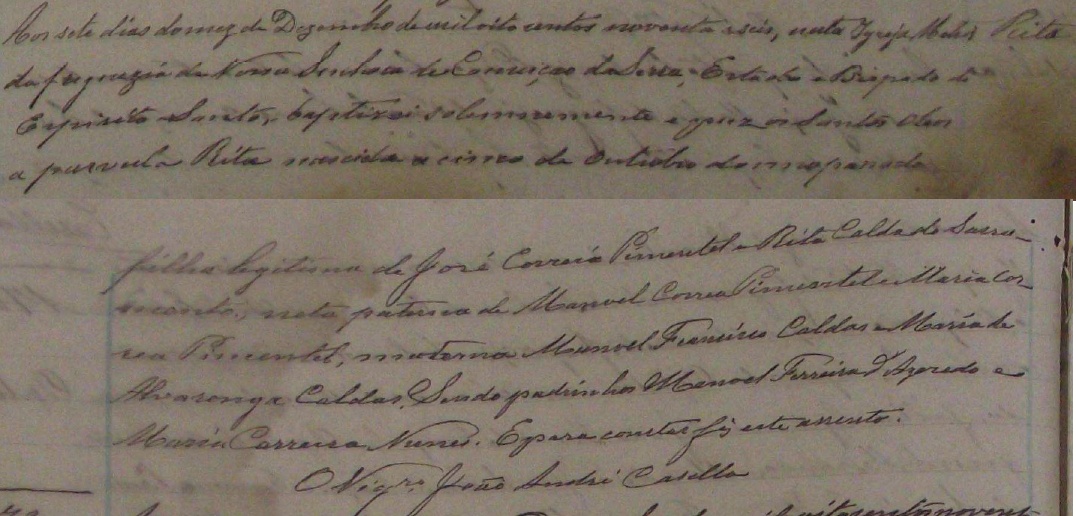 Aos sete dias do mez de Dezembro de mil oito centos noventa e seis, nesta Igreja Matriz Rita
da freguezia de Nossa Senhora da Conceiçao da Serra, Estado e Bispado do
Espirito Santo, baptizei solemnemente e puz os Santos Oleos
a parvula Rita nascida a cinco de Outubro do mo passado
filha legitima de José Correia Pimentel e Rita Caldas do Sacra-
mento, neta paterna de Manoel Correa Pimentel e Maria Cor
rea Pimentel, materna Manoel Francisco Caldas e Maria de
Alvarenga Caldas. Sendo padrinhos Manoel Ferreira d'Azeredo e
Maria Carreira Nunes. E para constar fiz este assento.
O Vigro João André Casella
oitocentos novent